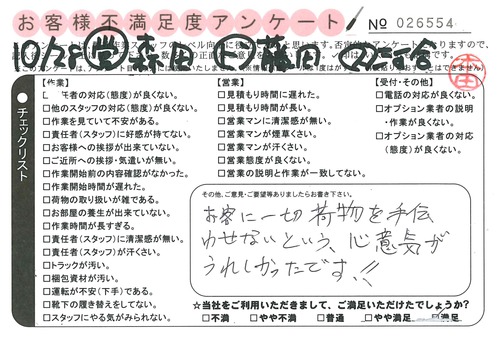 お客様不満足度アンケート
No 026554
10/28 営 森田
チェックリスト
【作業】
者の対応(態度)が良くない。
□他のスタッフの対応(態度)が良くない。
□作業を見ていて不安がある。
□責任者(スタッフ)に好感が持てない。
□お客様への挨拶が出来ていない。
□ご近所への挨拶・気遣いが無い。
□作業開始前の内容確認がなかった。
□作業開始時間が遅れた。
□荷物の取り扱いが雑である。
□お部屋の養生が出来ていない。
□作業時間が長すぎる。
□責任者(スタッフ)に清潔感が無い。
□責任者(スタッフ)が汗くさい。
□トラックが汚い。
□梱包資材が汚い。
□運転が不安(下手)である。
□靴下の履き替えをしてない。
□スタッフにやる気がみられない。
【営業】
□見積もり時間に遅れた。
□見積もり時間が長い。
□営業マンに清潔感が無い。
□営業マンが煙草くさい。
□営業マンが汗くさい。
□営業態度が良くない。
□営業の説明と作業が一致してない。
【受付・その他】
□電話の対応が良くない。
□オプション業者の説明
・作業が良くない。
□オプション業者の対応
(態度)が良くない。
その他、ご意見・ご要望等ありましたらお書き下さい。
お客に一切荷物を手伝
わせないという、心意気が
うれしかったです!!
☆当社をご利用いただきまして、ご満足いただけたでしょうか?
□不満 □やや不満 □普通 □やや満足 □満足